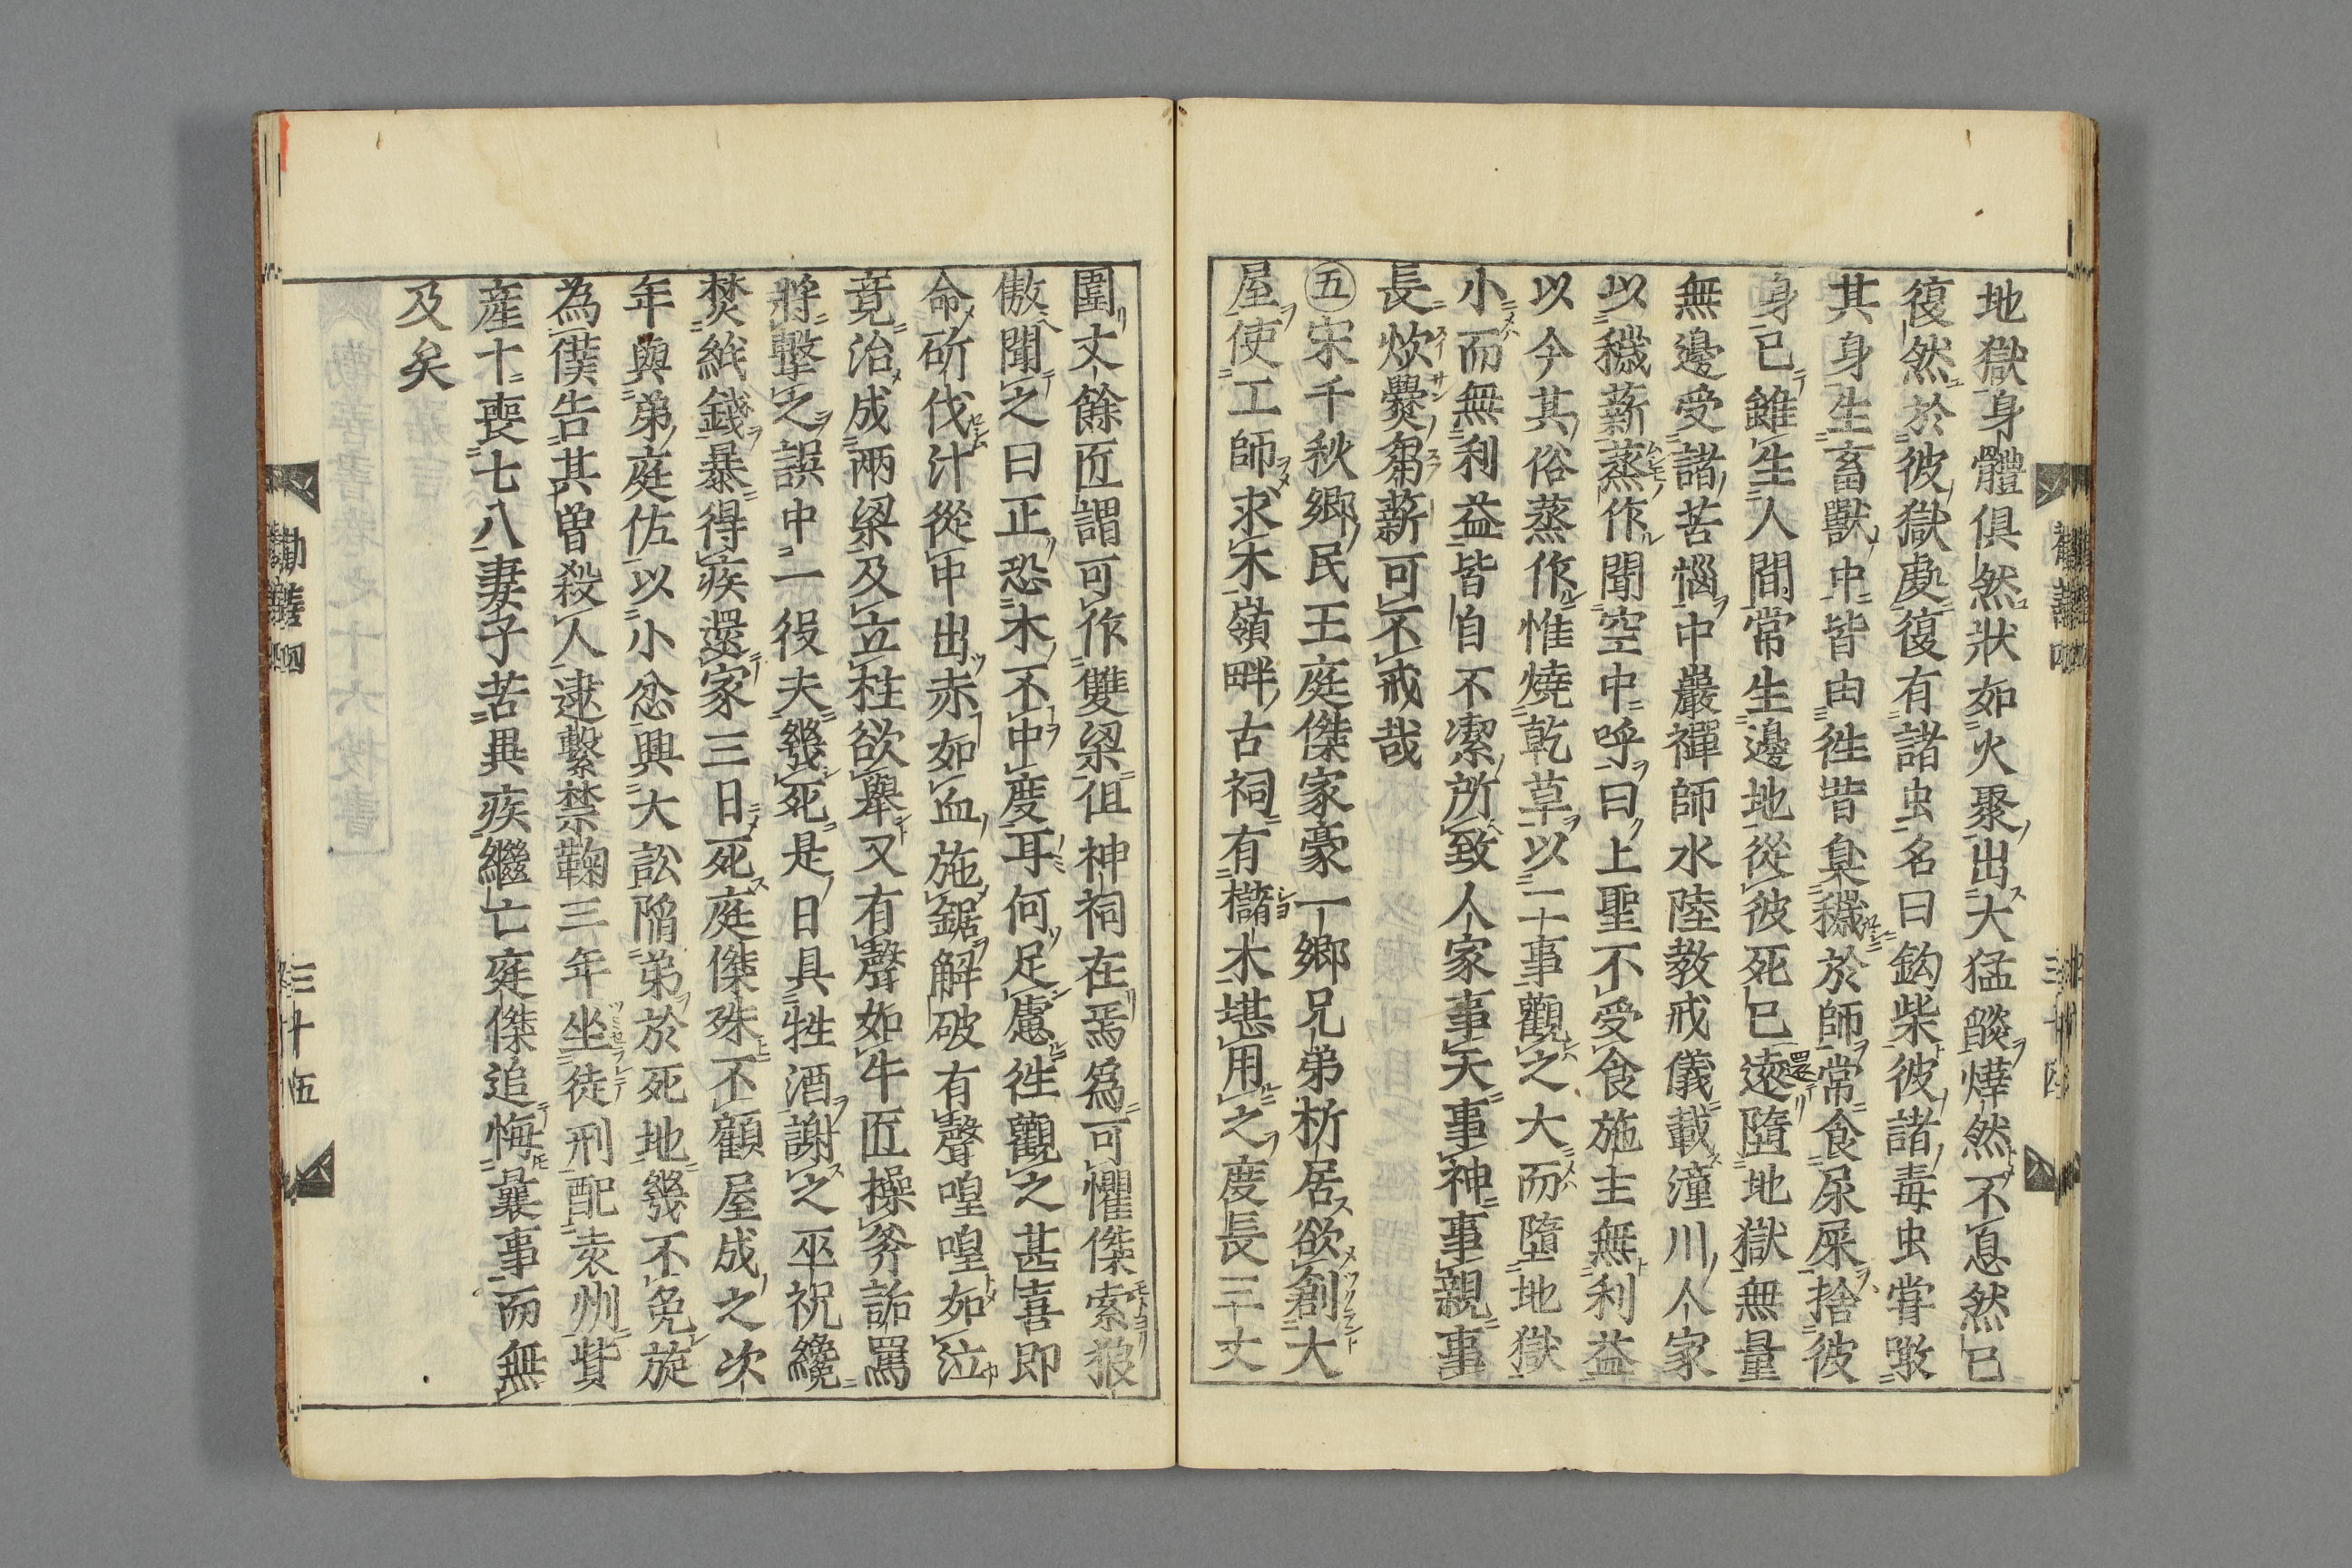 地獄身體俱然狀如火聚出大猛燄燁然不息然已
復然於彼獄處復有諸虫名曰鈎柴彼諸毒虫甞噉
其身生畜獸中皆由徃昔臭穢於師常食尿屎捨彼
身已雖生人間常生邊地從彼死已遠還墮地獄無量
無邊受諸苦惱中嚴禪師水陸教戒儀載潼川人家
以穢薪蒸作聞空中呼曰上聖不受食施主無利益
以今其俗蒸作惟燒乾草以二十事觀之大而墮地獄
小而無利益皆自不潔所致人家事事天事神事親事
長炊爨芻薪可不戒哉
㊄宋千秋鄉民王庭傑家豪一鄉兄弟析居欲創大
屋使工師求木嶺畔古祠有櫧木堪用之度長三丈
圍丈餘匠謂可作雙梁但神祠在焉為可懼傑索狼
傲聞之曰正恐木不中度耳何足慮徃觀之甚喜即
命斫伐汁從中出赤如血施鋸解破有聲喤喤如泣
竟治成兩梁及立柱欲舉又有聲如牛匠操斧詬罵
將擊之誤中一役夫幾死是日具牲酒謝之巫祝纔
焚紙錢暴得疾還家三日死庭傑殊不顧屋成之次
年與弟庭佐以小忿興大訟陷弟於死地幾不免旋
為僕告其曾殺人逮繫禁鞠三年坐徒刑配袁州貲
産十喪七八妻子苦異疾繼亡庭傑追悔曩事而無
及矣
勸善四
三十五